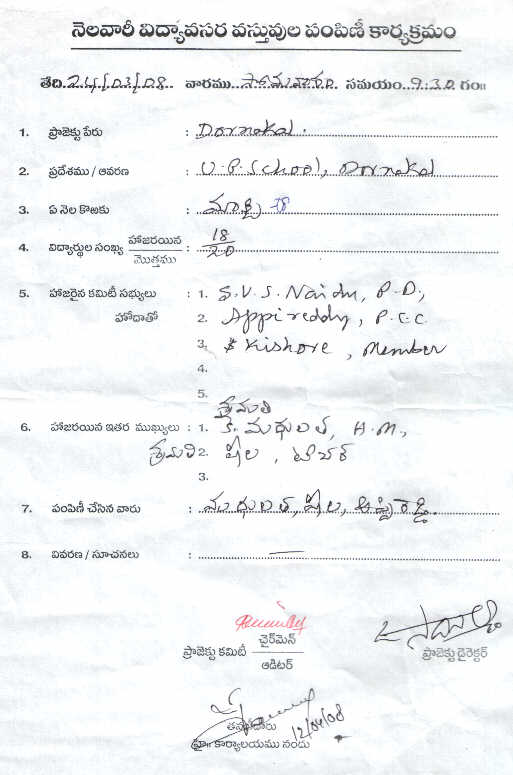 నెలవారీ విద్యావసర వస్తువుల పంపిణీ కార్యక్రమం
తేది.24/03/08.. వారము సోమవారం సమయం..9.30 గం॥
1. ప్రాజెక్టు పేరు : Dornakal.
2. ప్రదేశము / ఆవరణ : U.P.School, Dornakal
3. ఏ నెల కొఱకు : మార్చి 08
4. విద్యార్థుల సంఖ్య హాజరయిన / మొత్తము : 18/20
5. హాజరైన కమిటీ సభ్యులు : 1. S.V.S. Naidu, P.D.,
హోదాతో 2. Appireddy, P.C.C.
3. Kishore, Member
4.
5.
శ్రీమతి
6. హాజరయిన ఇతర ముఖ్యులు : 1. కె. మధులత, H.M.,
శ్రీమతి 2. షీల, టీచర్
3.
7. పంపిణీ చేసిన వారు : మధులత, షీల, అప్పిరెడ్డి.
8. వివరణ / సూచనలు : —
ప్రాజెక్టు కమిటీ చైర్‌మెన్ / ఆడిటర్
ప్రాజెక్టు డైరెక్టర్
12/04/08
కార్యాలయము నందు